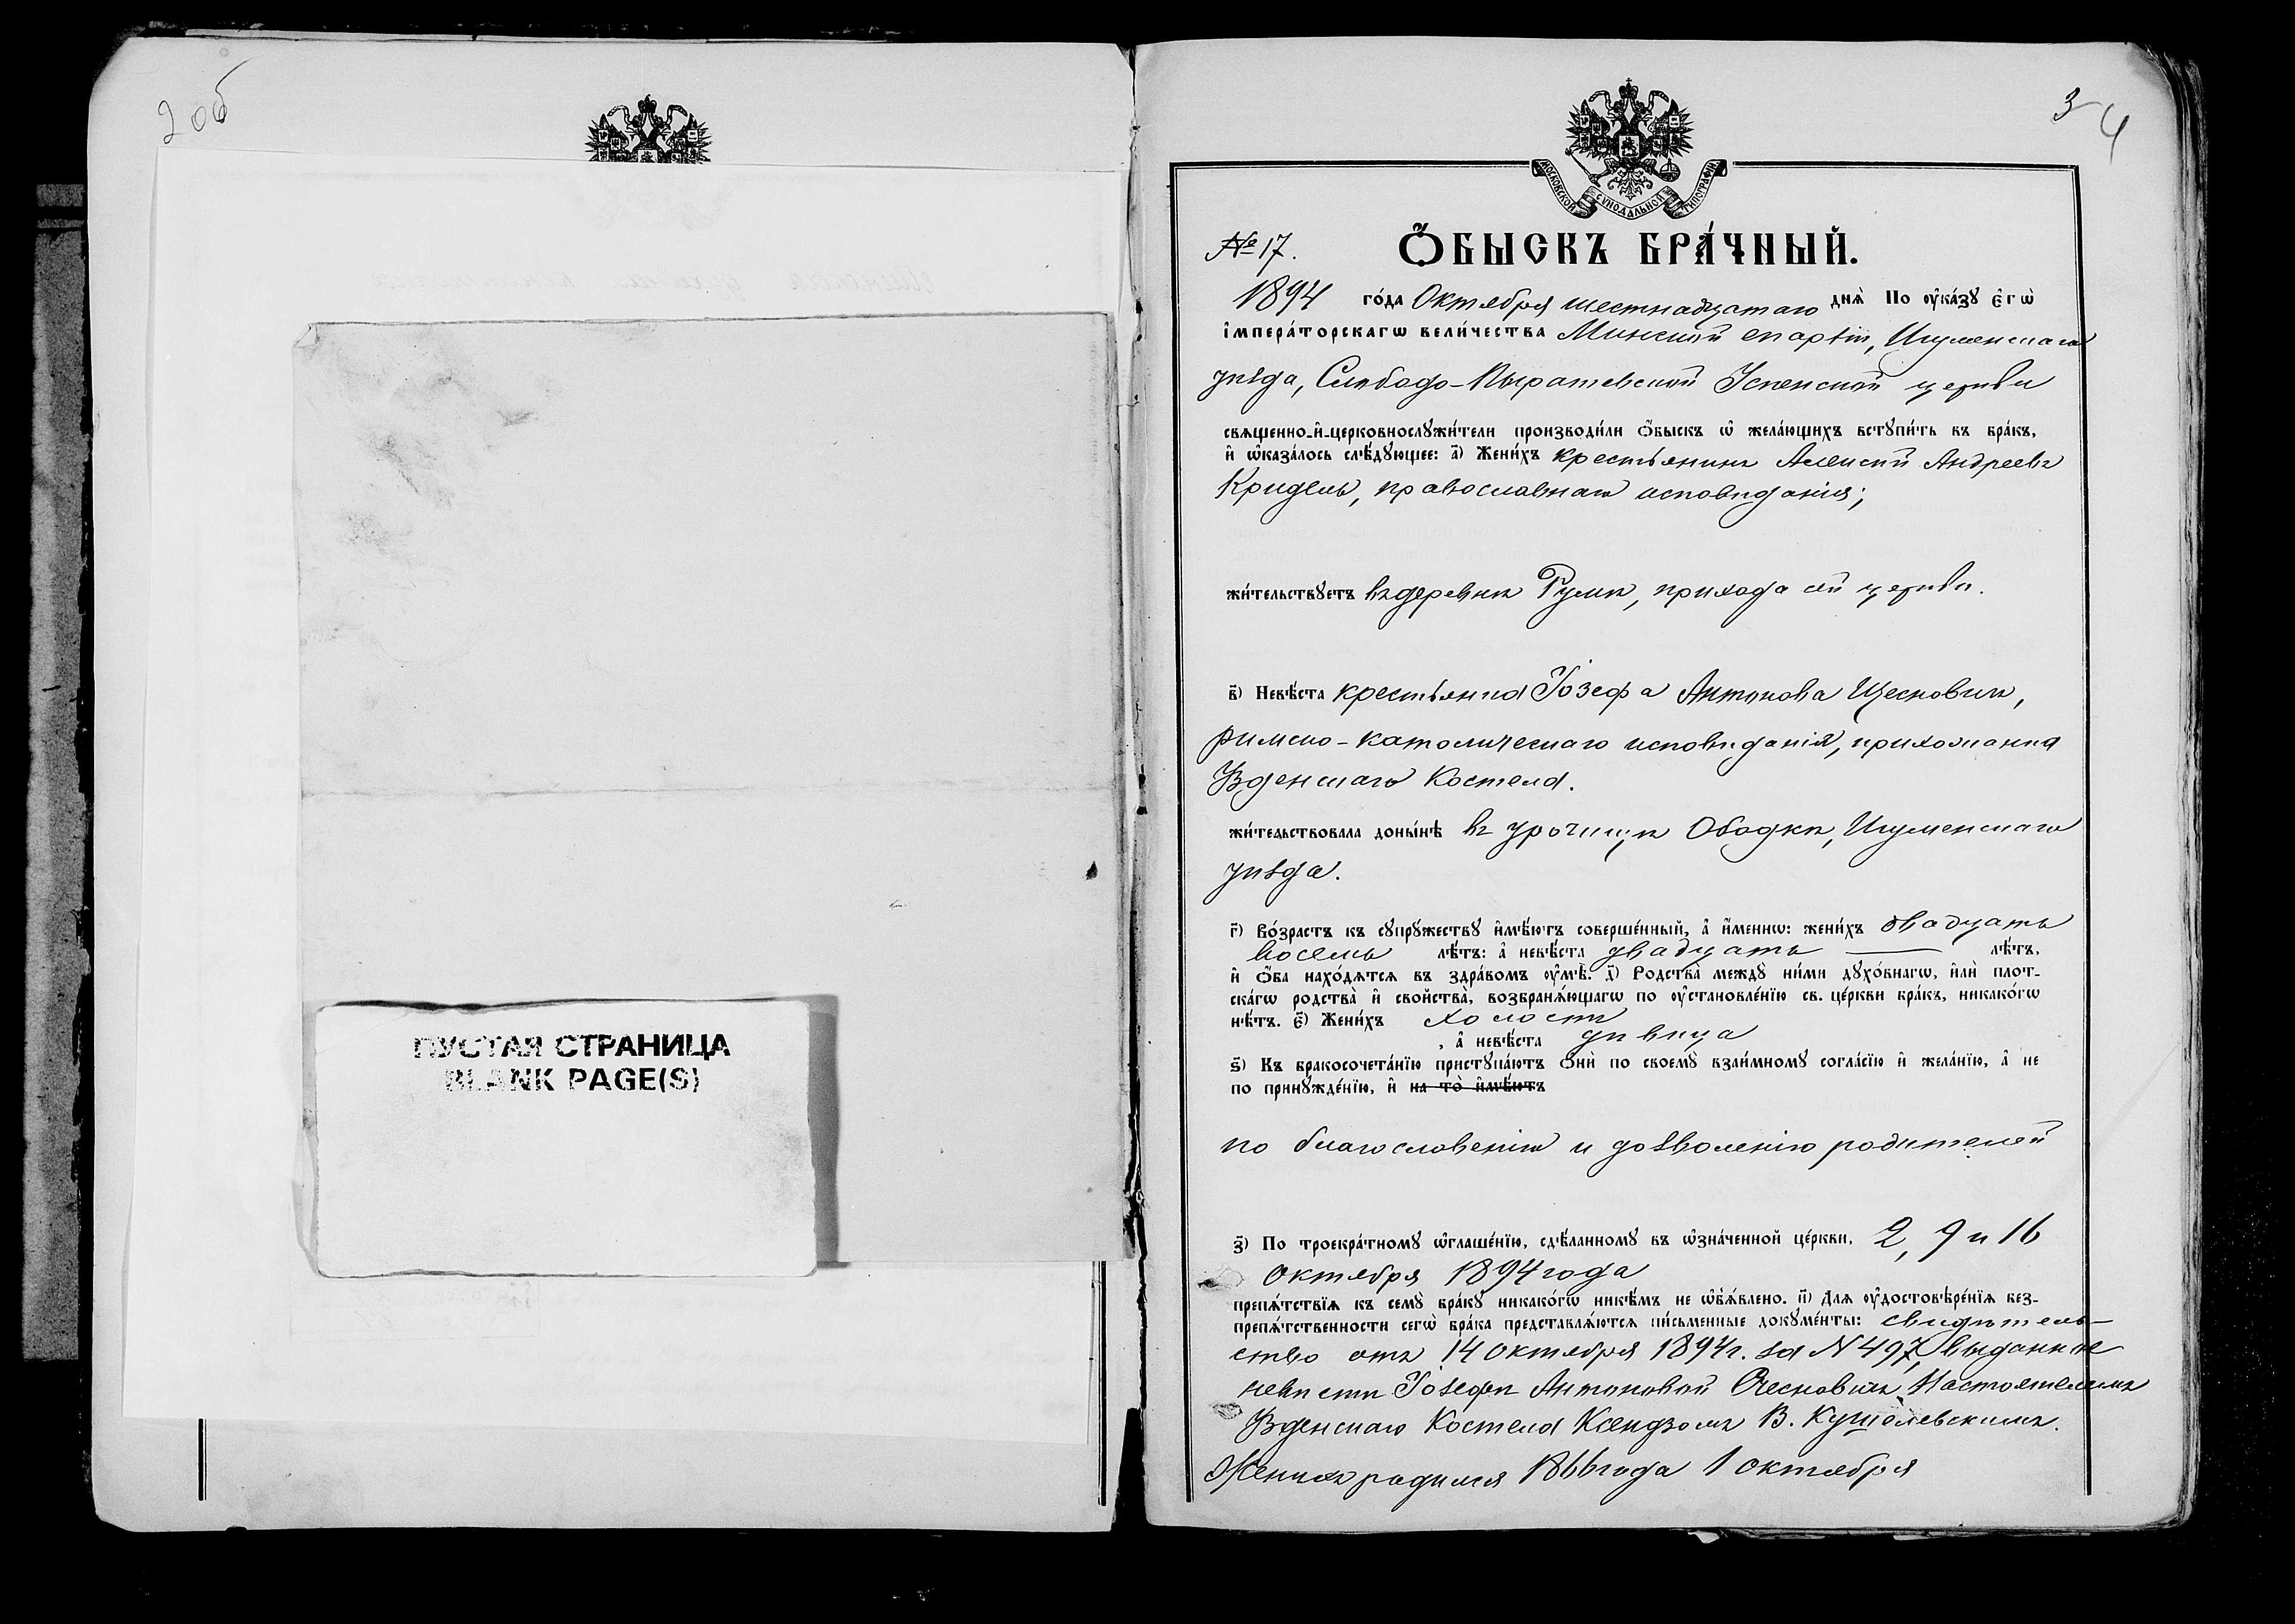 2 об
ПУСТАЯ СТРАНИЦА
BLANK PAGE(S)
3
4
МОСКОВСКОЙ СѴНОДАЛЬНОЙ ТИПОГРАФІИ
№ 17.
Ѻ҆БЫСКЪ БРА́ЧНЫЙ.
1894 го́да Октября шестнадцатаго дня̀ По ᲂу҆ка́зꙋ є҆гѡ̀
і҆мпера́торскагѡ вели́чества Минской епархіи, Игуменскаго
уѣзда, Слободо-Пырашевской Успенской церкви
свѧщенно-и҆-церковнослꙋжи́тели производи́ли ѻ҆́быскъ ѡ҆ жела́ющихъ встꙋпи́ть въ бра́къ,
и҆ ѡ҆каза́лось слѣ́дꙋющее: а҃) Жени́хъ крестьянинъ Алексій Андреевъ
Кридель, православнаго исповѣданія;
жи́тельствꙋетъ въ деревнѣ Гумн, прихода сей церкви.
в҃) Невѣ́ста крестьянка Іозефа Антонова Щесновичъ,
римско-католическаго исповѣданія, прихожанка
Узденскаго Костела.
жи́тельствовала доны́нѣ въ урочищѣ Ободки, Игуменскаго
уѣзда.
г҃) Во́зрастъ къ сꙋпрꙋ́жествꙋ и҆мѣ́ютъ соверше́нный, а҆ и҆́меннѡ: жени́хъ двадцать
восемь лѣ́тъ: а҆ невѣ́ста двадцать — лѣ́тъ,
и҆ ѻ҆́ба нахо́дѧтсѧ въ здра́вомъ ᲂу҆мѣ̀. д҃) Родства̀ междꙋ̀ ни́ми дꙋхо́внагѡ, и҆лѝ плот-
ска́гѡ родства̀ и҆ свойства̀, возбранѧ́ющагѡ по ᲂу҆становле́нїю св. це́ркви бра́къ, никако́гѡ
нѣ́тъ. є҃) Жени́хъ холостъ
, а҆ невѣ́ста дѣвица
ѕ҃) Къ бракосочета́нїю пристꙋпа́ютъ ѻ҆нѝ по своемꙋ̀ взаи́мномꙋ согла́сїю и҆ жела́нїю, а҆ не
по принꙋжде́нїю, и҆ на то̀ и҆мѣ́ютъ
по благословенію и дозволенію родителей
з҃) По троекра́тномꙋ ѡ҆глаше́нїю, сдѣ́ланномꙋ въ ѡ҆зна́ченной це́ркви, 2, 9 и 16
Октября 1894 года
препѧ́тствїѧ къ семꙋ̀ бра́кꙋ никако́гѡ никѣ́мъ не ѡ҆б̾ѧ́влено. и҃) Длѧ ᲂу҆достовѣре́нїѧ без-
препѧ́тственности сегѡ̀ бра́ка представлѧ́ютсѧ пи́сьменные докꙋме́нты: свидѣтель-
ство отъ 14 Октября 1894 г. за N 497, выданное
невѣстѣ Іозефѣ Антоновой Щесновичъ Настоятелемъ
Узденскаго Костела Ксендзомъ В. Кушелевскимъ.
Женихъ родился 1866 года 1 октября